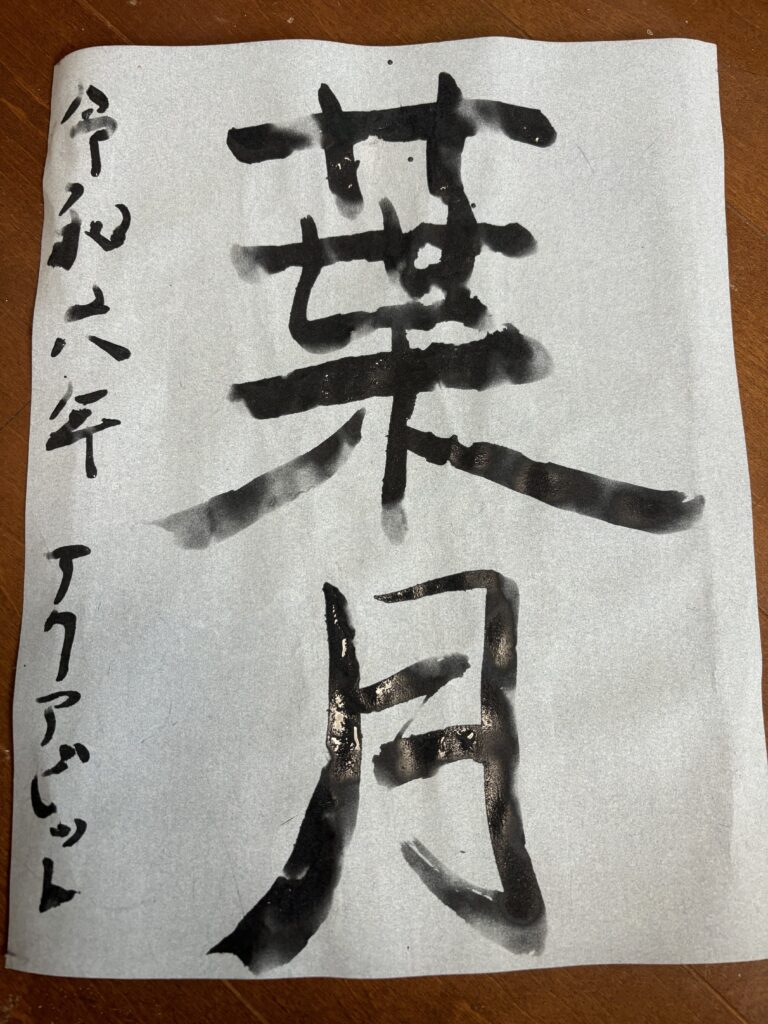 葉月
令和六年 アクアビット